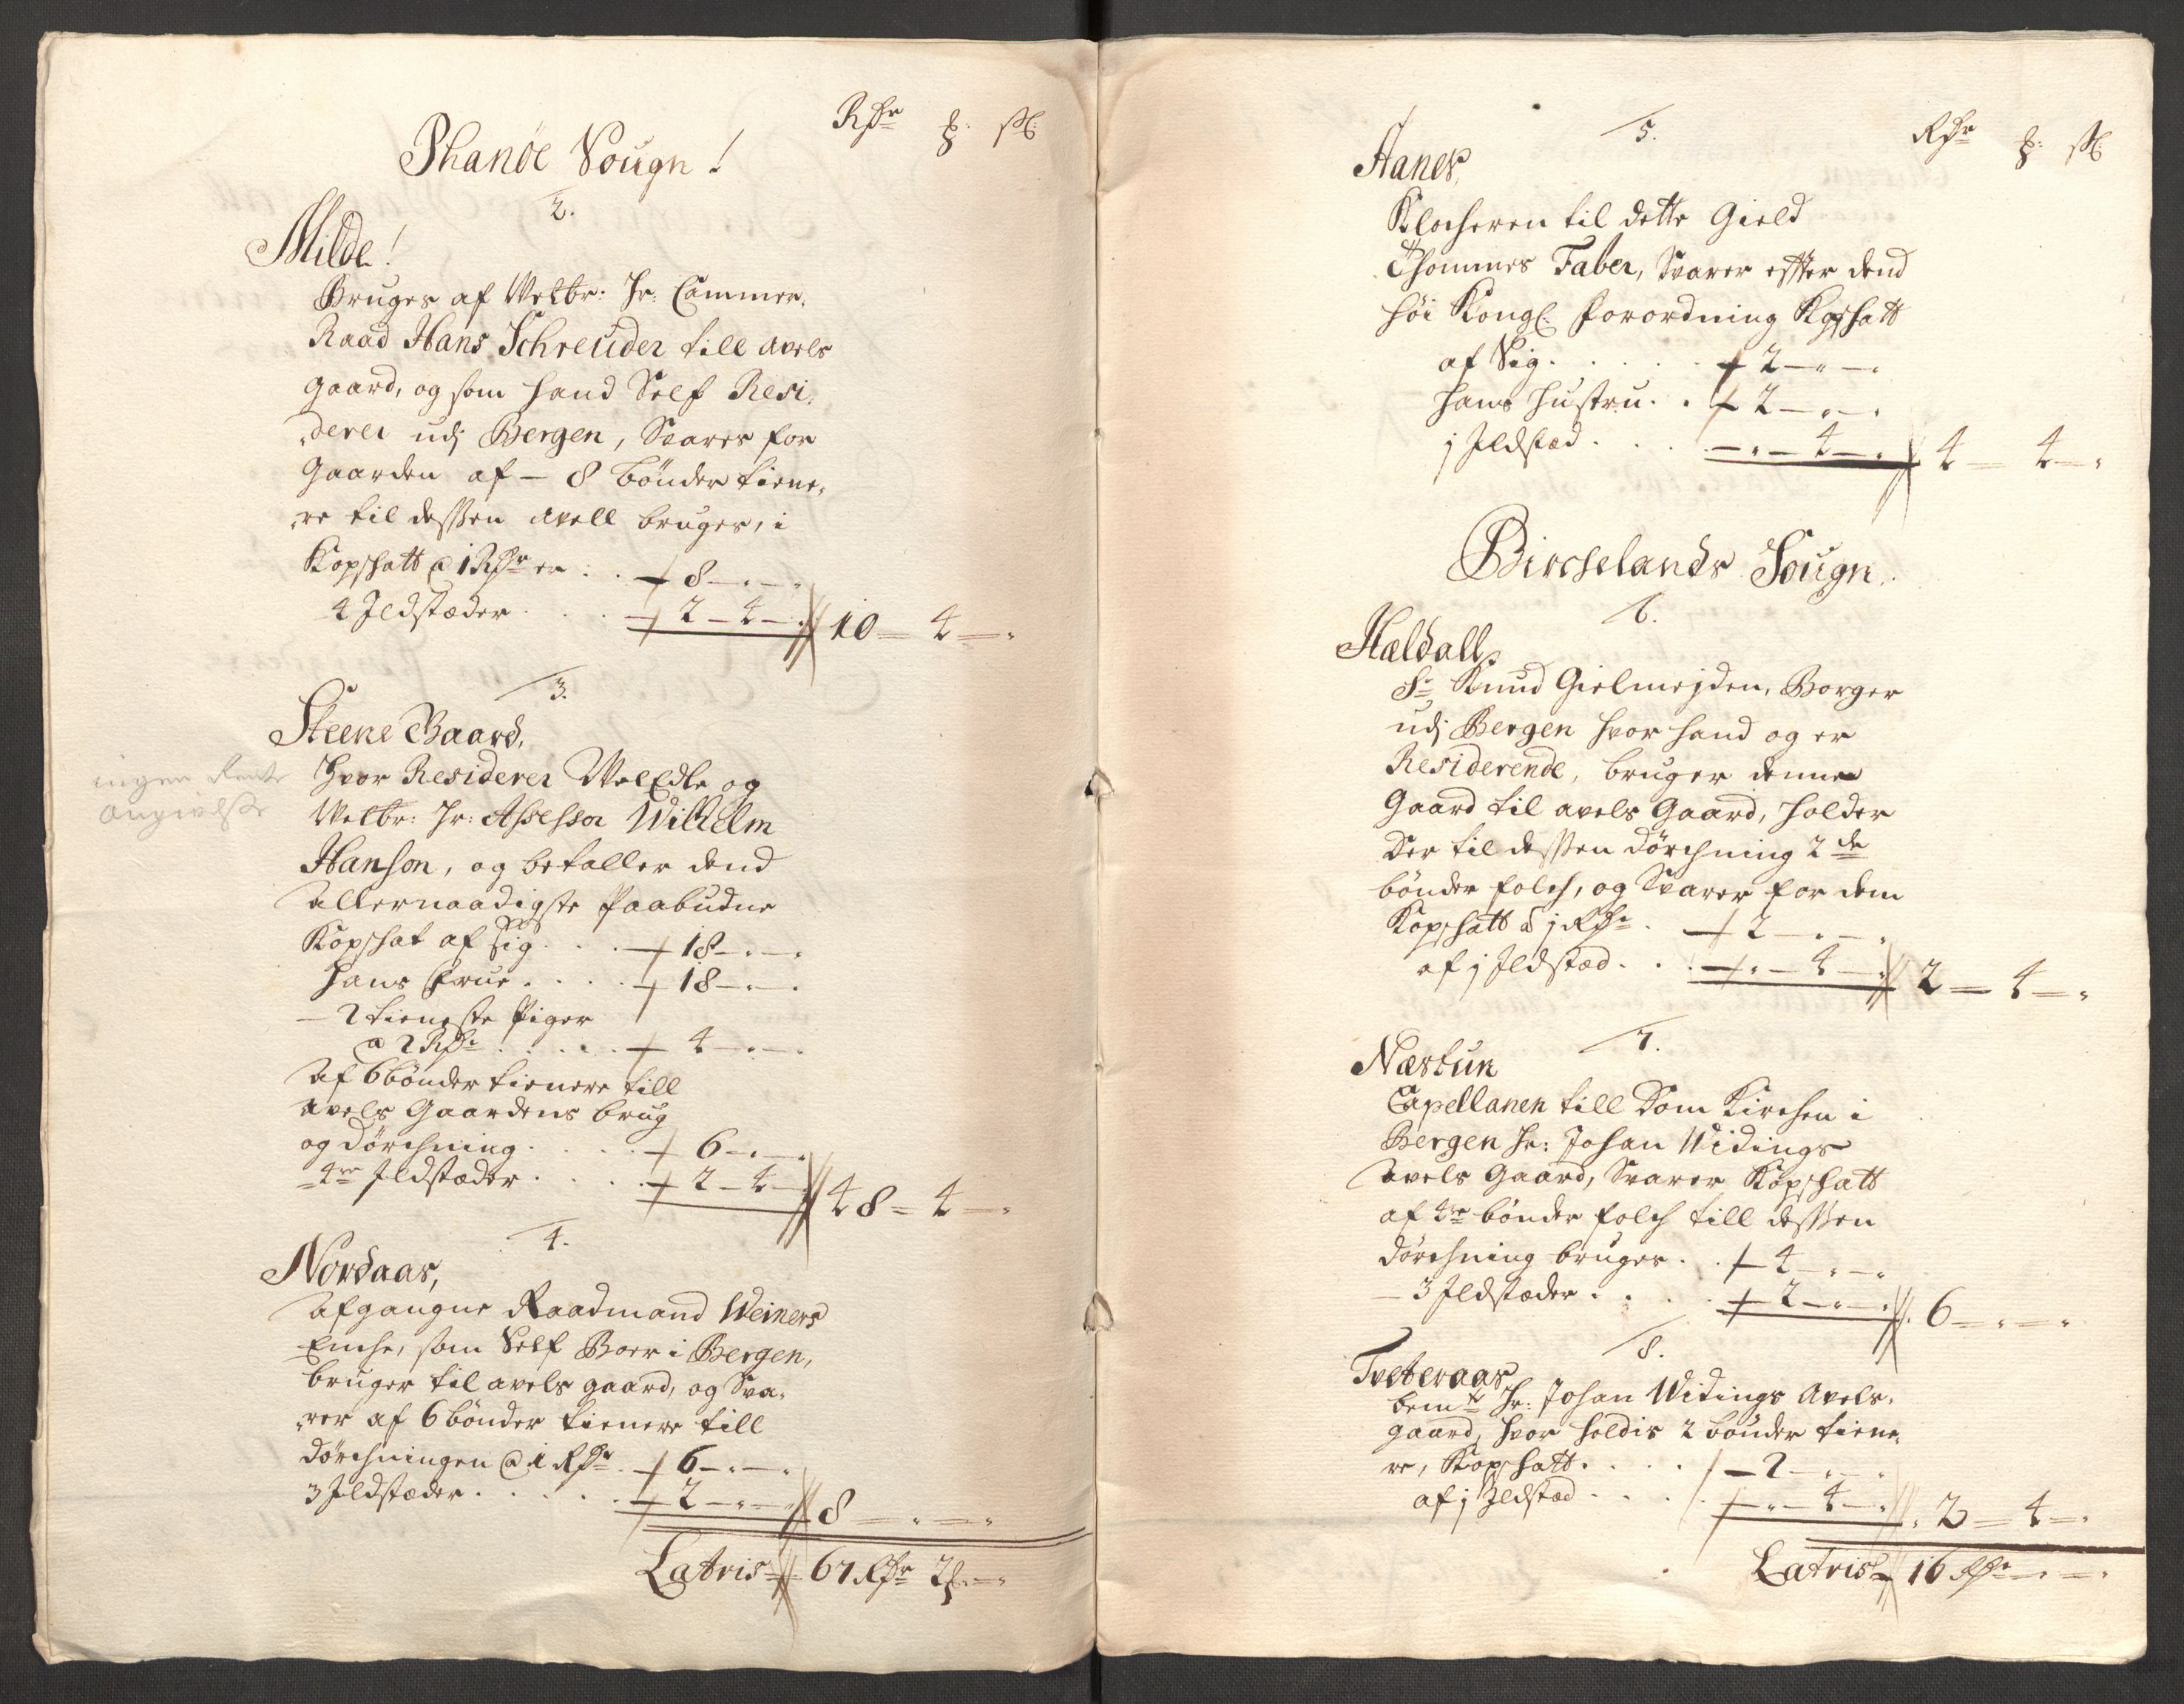 Rdr ꝑ: ſß
Phanöe Sougn!
2.
Milde!
Bruges af Welbr: Hr: Cammer,
Raad Hans Schreuder till avels
gaard, og som hand Self Resi,
,derer udj Bergen, Svarer for
Gaarden af – 8 bönder tiene,
,re til dessen avell bruges, i
Kopschatt @ 1 Rdr er . . 8 – " – "
4 Jldstæder . . . 2 – 4 – " 10 – 4 – "
3.
Steene Gaard,
ingen Rente
Angivelse
Hvor Residerer WelEdle og
Welbr: Hr: Assessor Wilhelm
Hanson, og betaller dend
allernaadigste Paabudne
Kopschat af sig . . . 18 – " – "
hans Frue . . . . 18 – " – "
– 2 tieneste Piger
a 2 Rdr . . . . . 4 – " – "
af 6 bönder tienere till
avels Gaardens brug
og dörchning . . . . 6 – " – "
4re Jldstæder . . . . 2 – 4 – " 48 – 4 – "
4.
Nordaas,
afgangne Raadmand Weiners
Enche, som Self Boer i Bergen,
bruger til avels gaard, og Sva,
,rer af 6 bönder tienere till
dörchningen @ 1 Rdr . 6 – " – "
3 Jldstæder . . . . . 2 – " – " 8 – " – "
Latris 67 Rdr 2 ꝑ – "
5.
Rdr ꝑ: ſß
Aanes,
Klocheren til dette Gield
Thommes Faber, Svarer efter dend
höi Kongl: forordning Kopschatt
af Sig . . . . . 2 – " – "
hans hustru . . 2 – " – "
j Jldstæd . . . – " – 4 – " 4 – 4 – "
Birchelands Sougn.
6.
Hældall,
Sr Knud Gielmejden, Borger
udj Bergen hvor hand og er
Residerende, bruger denne
Gaard til avels Gaard, holder
der til dessen dörchning 2de
bönder folch, og Svarer for dem
Kopschatt a j Rdr . 2 – " – "
af j Jldstæd . . . – " – 4 – " 2 – 4 – "
7.
Næstun
Capellanen till Dom Kirchen i
Bergen Hr: Johan Widings
avels Gaard, Svarer Kopschatt
af 4re bönder folch till dessen
dörchning bruges . . 4 – " – "
– 3 Jldstæder . . . . 2 – " – " 6 – " – "
8.
Tvetteraas
bemte Hr: Johan Widings Avels,
gaard, hvor holdis 2 bönder tiene,
re, Kopschatt . . . . 2 – " – "
af j Jldstæd . . . . – " – 4 – " 2 – 4 – "
Latris 16 Rdr – " – "